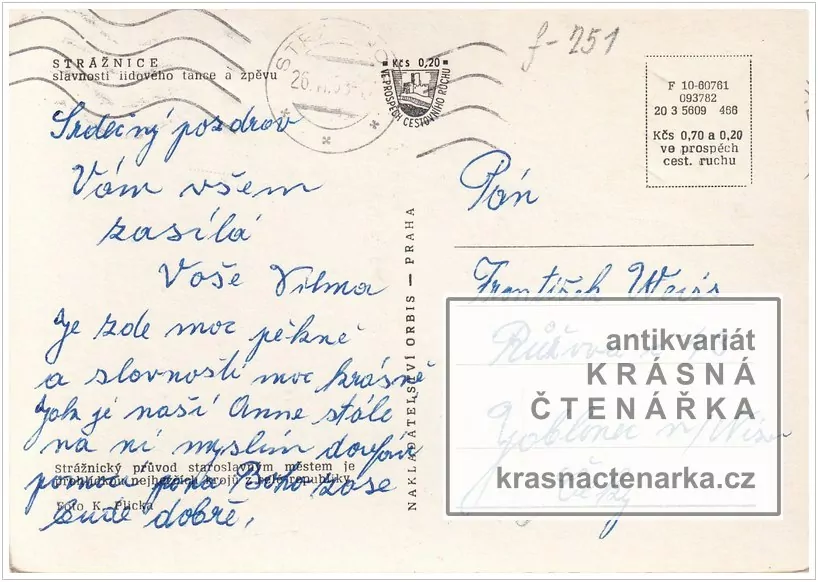 STRÁŽNICE
slavnosti lidového tance a zpěvu
Kčs 0,20
VE PROSPĚCH CESTOVNÍHO RUCHU
f-251
F 10-60761
093782
20 3 5609 466
Kčs 0,70 a 0,20
ve prospěch
cest. ruchu
Srdečný pozdrav
Vám všem
zasílá
Vaše Vilma
Je zde moc pěkně
a slavnosti moc krásné
Jak je naší Anne stále
na ní myslím doufám
pomocí pána Boha zase
bude dobře.
Strážnický průvod staroslavným městem je
přehlídkou nejhezčích krojů z celé republiky
Foto K. Plicka
NAKLADATELSTVÍ ORBIS — PRAHA
Pán
František Weiss
Růžová
Jablonec n/Nisou
antikvariát
KRÁSNÁ
ČTENÁŘKA
krasnactenarka.cz